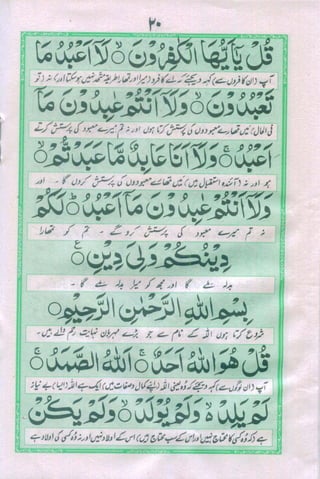 ۲۰
قُلْ يٰٓاَيُّهَا الْكٰفِرُوْنَ ۙ لَآ اَعْبُدُ مَا
آپ (ان کافروں سے) کہہ دیجئے کہ اے کافرو (میرا اور تمھارا طریقہ متحد نہیں ہو سکتا اور) نہ (تو
تَعْبُدُوْنَ ۙ وَلَآ اَنْتُمْ عٰبِدُوْنَ مَآ
فی الحال) میں تمھارے معبودوں کی پرستش کرتا ہوں اور نہ تم میرے معبود کی پرستش کرتے
اَعْبُدُ ۚ وَلَآ اَنَا عَابِدٌ مَّا عَبَدْتُّمْ ۙ
ہو اور نہ (آئندہ استقبال میں) میں تمھارے معبودوں کی پرستش کروں گا ۔ اور
وَلَآ اَنْتُمْ عٰبِدُوْنَ مَآ اَعْبُدُ ؕ لَكُمْ
نہ تم میرے معبود کی پرستش کرو گے ۔ تم کو تمھارا
دِيْنُكُمْ وَلِيَ دِيْنِ ۧ
بدلہ ملے گا اور مجھ کو میرا بدلہ ملے گا ۔
بِسْمِ اللّٰهِ الرَّحْمٰنِ الرَّحِيْمِ
شروع کرتا ہوں اللہ کے نام سے جو بڑے مہربان نہایت رحم والے ہیں ۔
قُلْ هُوَ اللّٰهُ اَحَدٌ ۚ اَللّٰهُ الصَّمَدُ ۚ
آپ (ان لوگوں سے) کہہ دیجئے کہ وہ یعنی اللہ (اپنے کمال و صفات میں) ایک ہے اللہ (ایسا) بے نیاز
لَمْ يَلِدْ ۙ وَلَمْ يُوْلَدْ ۙ وَلَمْ يَكُنْ
ہے (کہ وہ کسی کا محتاج نہیں اور اس کے سب محتاج ہیں) اس کے اولاد نہیں اور نہ وہ کسی کی اولاد ہے